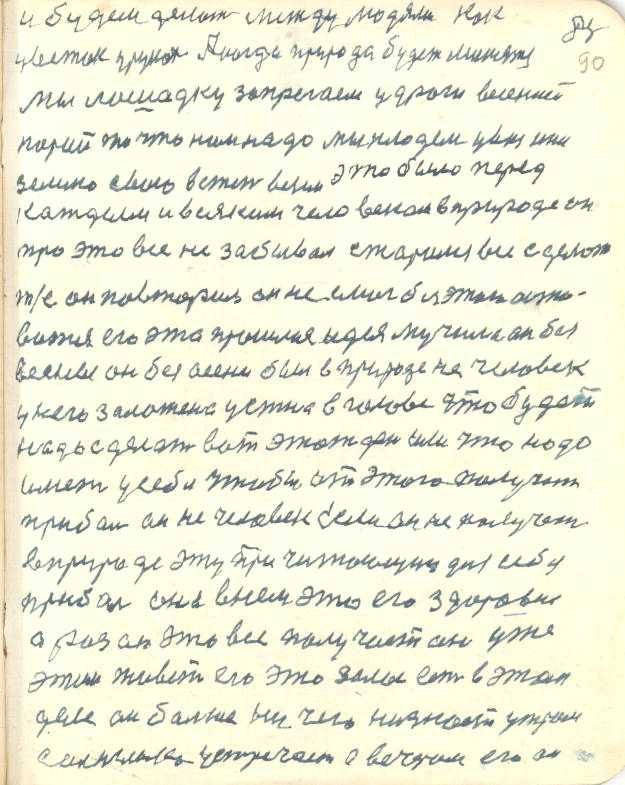 90
и будем делат между людями как
цветок друпая А когда природа будет меняяс
мы лошадку запрегаем у дроги весенней
порой то что нам надо мы кладем
землю свою это было перед
каждым и всяким человеком в природе он
про это все не забывал старался все сделат
т/е он повторял он не смог б этом оста-
вотся его эта прошлая идея мучила он без
весны он без осени был в природе не человек
у него заложена устна в голове што будит
надо сделат вот этот ден или что надо
имет у себя чтобы от этого получит
прибал он не человек если он не получит
в природе эту причитающую для себя
прибал она в нем это его здоровие
а раз он это все получает он уже
этим живет его это земля ест в этом
деле он болше ни чего утром
солнышко устречает а вечером его он